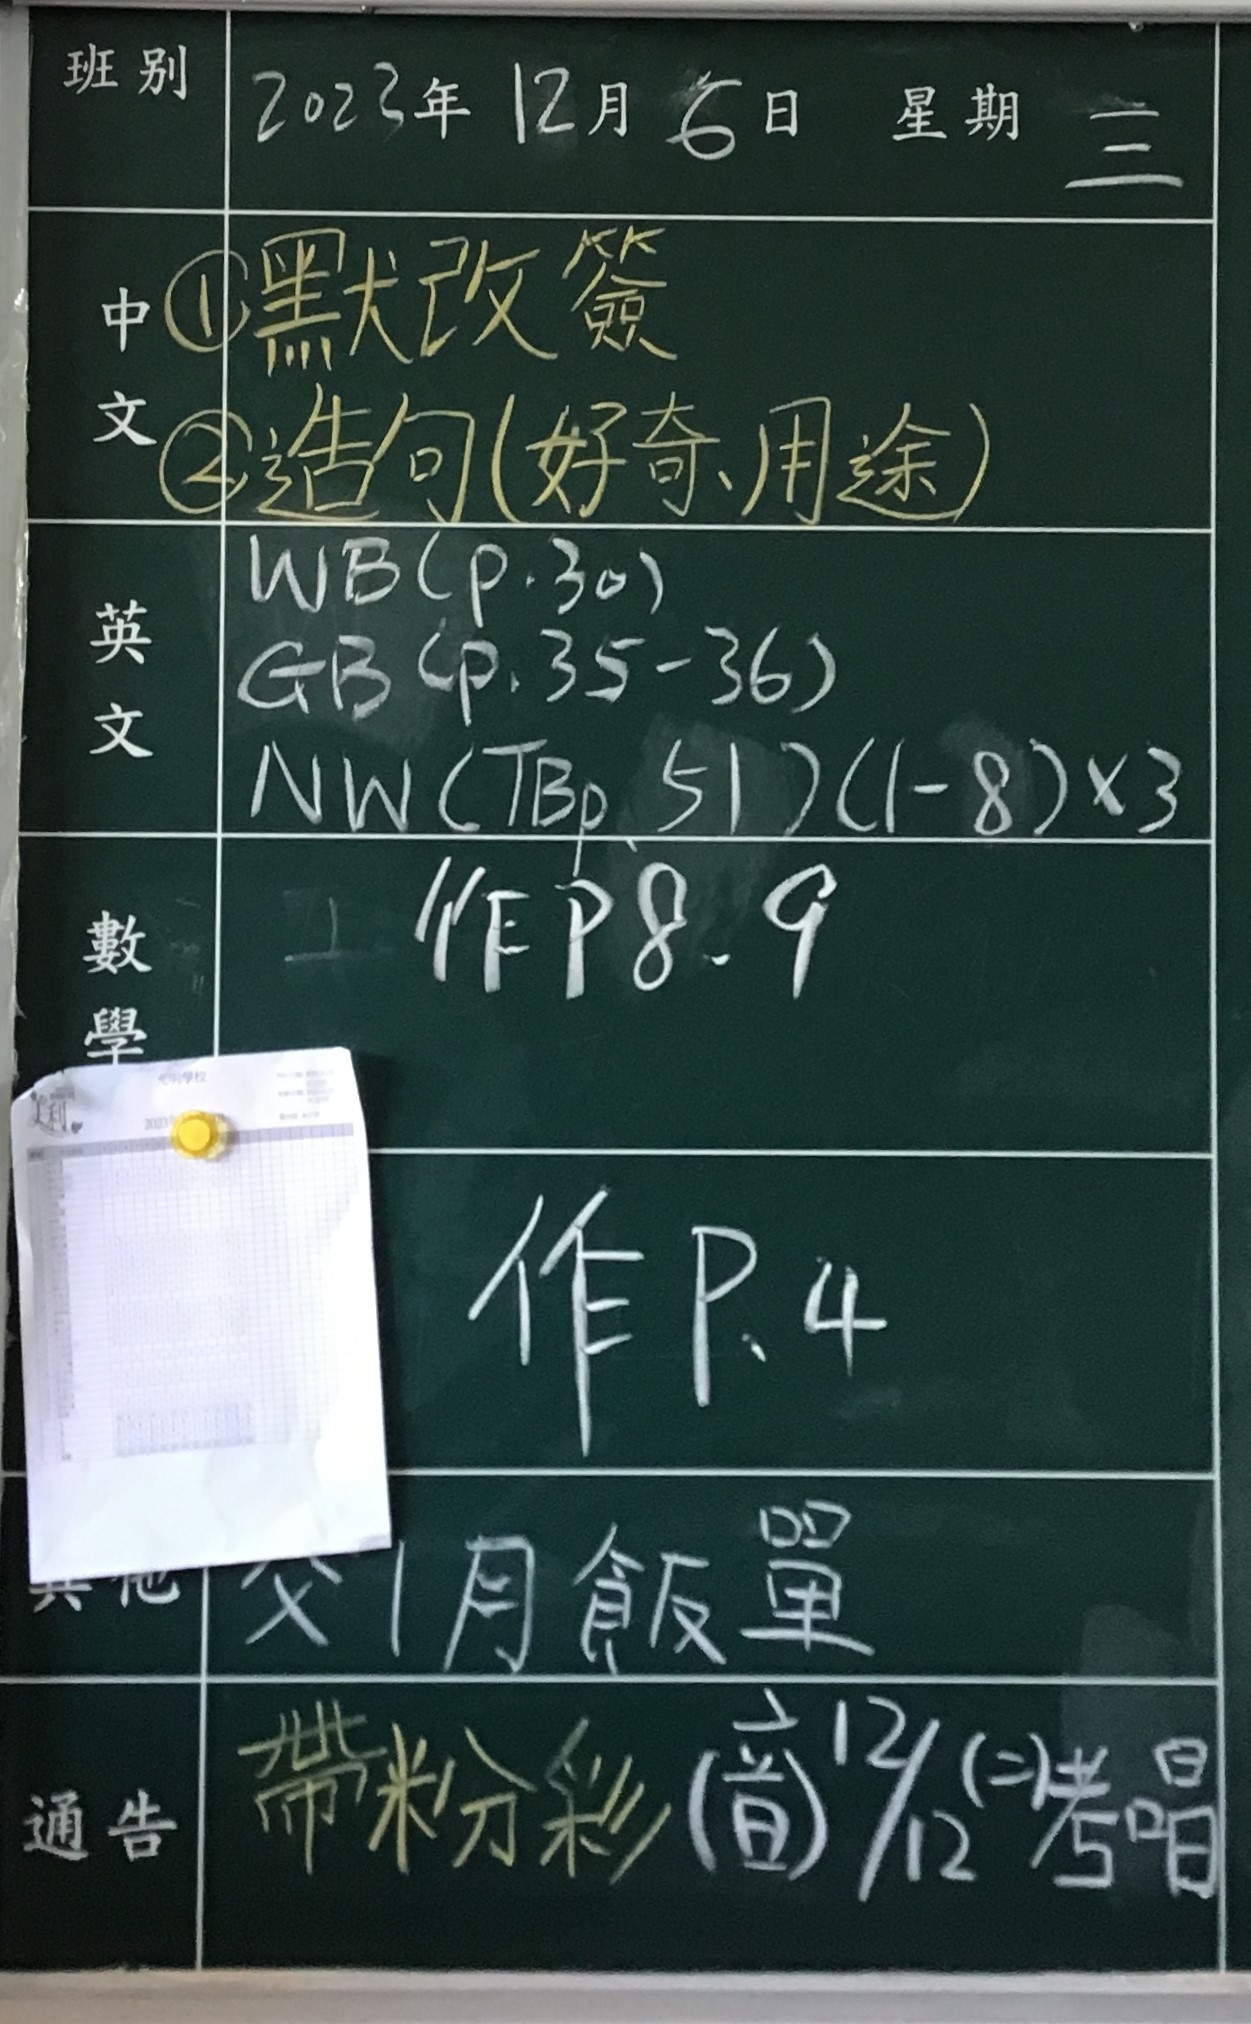 班別
2023年 12月 6日 星期 三
中文
①默改簽
②造句(好奇、用途)
英文
WB(p.30)
GB(p.35-36)
NW(TBp.51)(1-8)×3
數學
作P8、9
作P.4
其他
交1月飯單
通告
帶粉彩(音)12/12(二)考唱